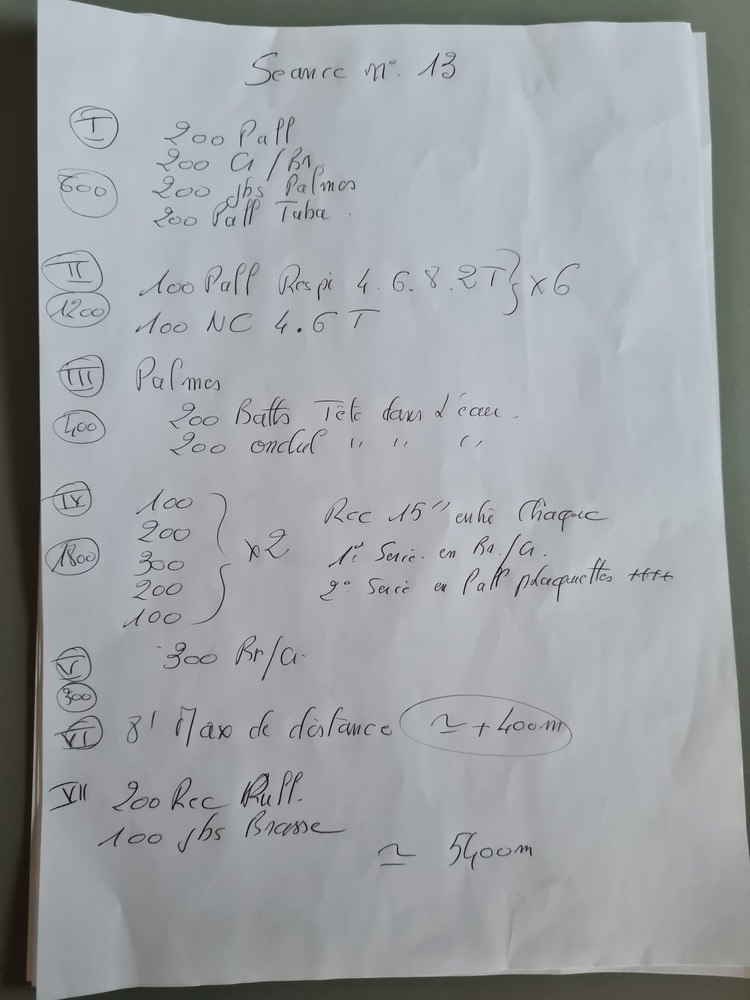 Seance n°. 13
I 200 Pull
200 Cr/Br.
800 200 jbs Palmes
200 Pull Tuba.
II 100 Pull Respi 4.6.8.2T } x6
1200 100 NC 4.6 T
III Palmes
200 Batts Tête dans L'eau.
400 200 ondul " " "
IV 100
200 Rec 15" entre Chaque
1800 300 x2 1° Serie. en Br./Cr.
200 2° Serie en Pull plaquettes ++++
100
300 Br/Cr.
300
VI 8' Max de distance ≃ +400m
VII 200 Rec Pull.
100 jbs Brasse
≃ 5400m